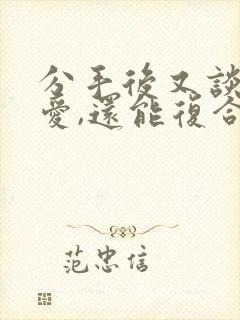 分手後又談
愛,還能復合
范忠信